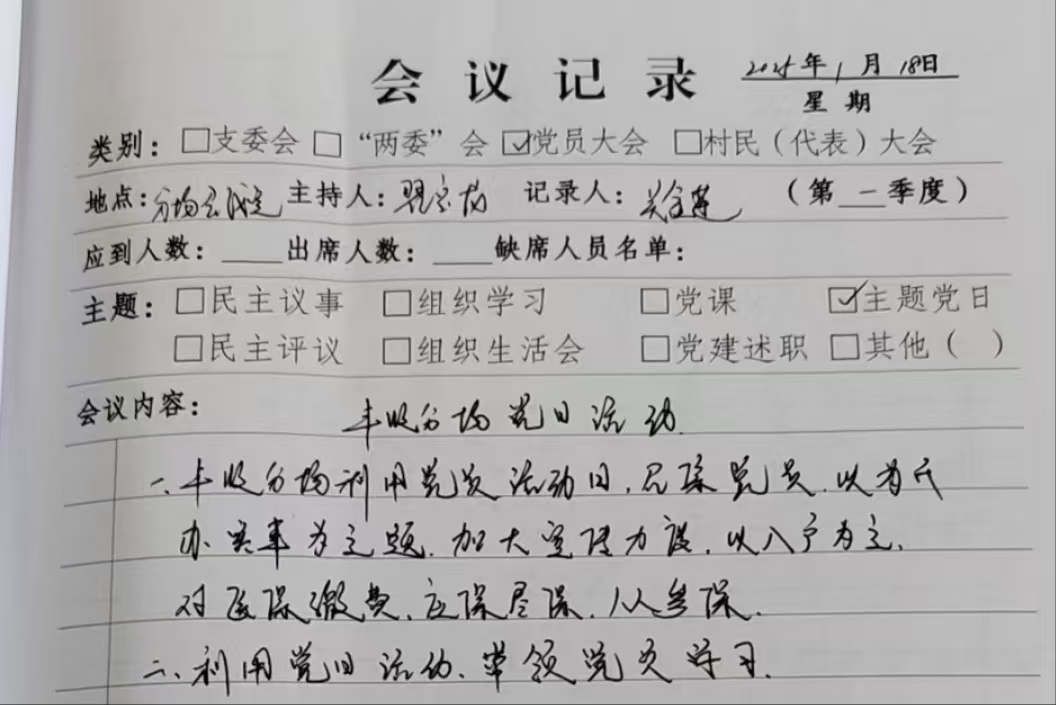 会议记录 2025年1月18日
星期
类别：□支委会 □“两委”会 ☑党员大会 □村民（代表）大会
地点：分场会议室 主持人： 记录人： （第一季度）
应到人数：____出席人数：____缺席人员名单：
主题：□民主议事 □组织学习 □党课 ☑主题党日
□民主评议 □组织生活会 □党建述职 □其他（ ）
会议内容： 丰收分场党日活动.
一、丰收分场利用党员活动日，党员，以为民
办实事为主题.加大宣传力度.以入户为主.
对医保缴费、应保尽保.人人参保.
二、利用党日活动.带领党员学习.